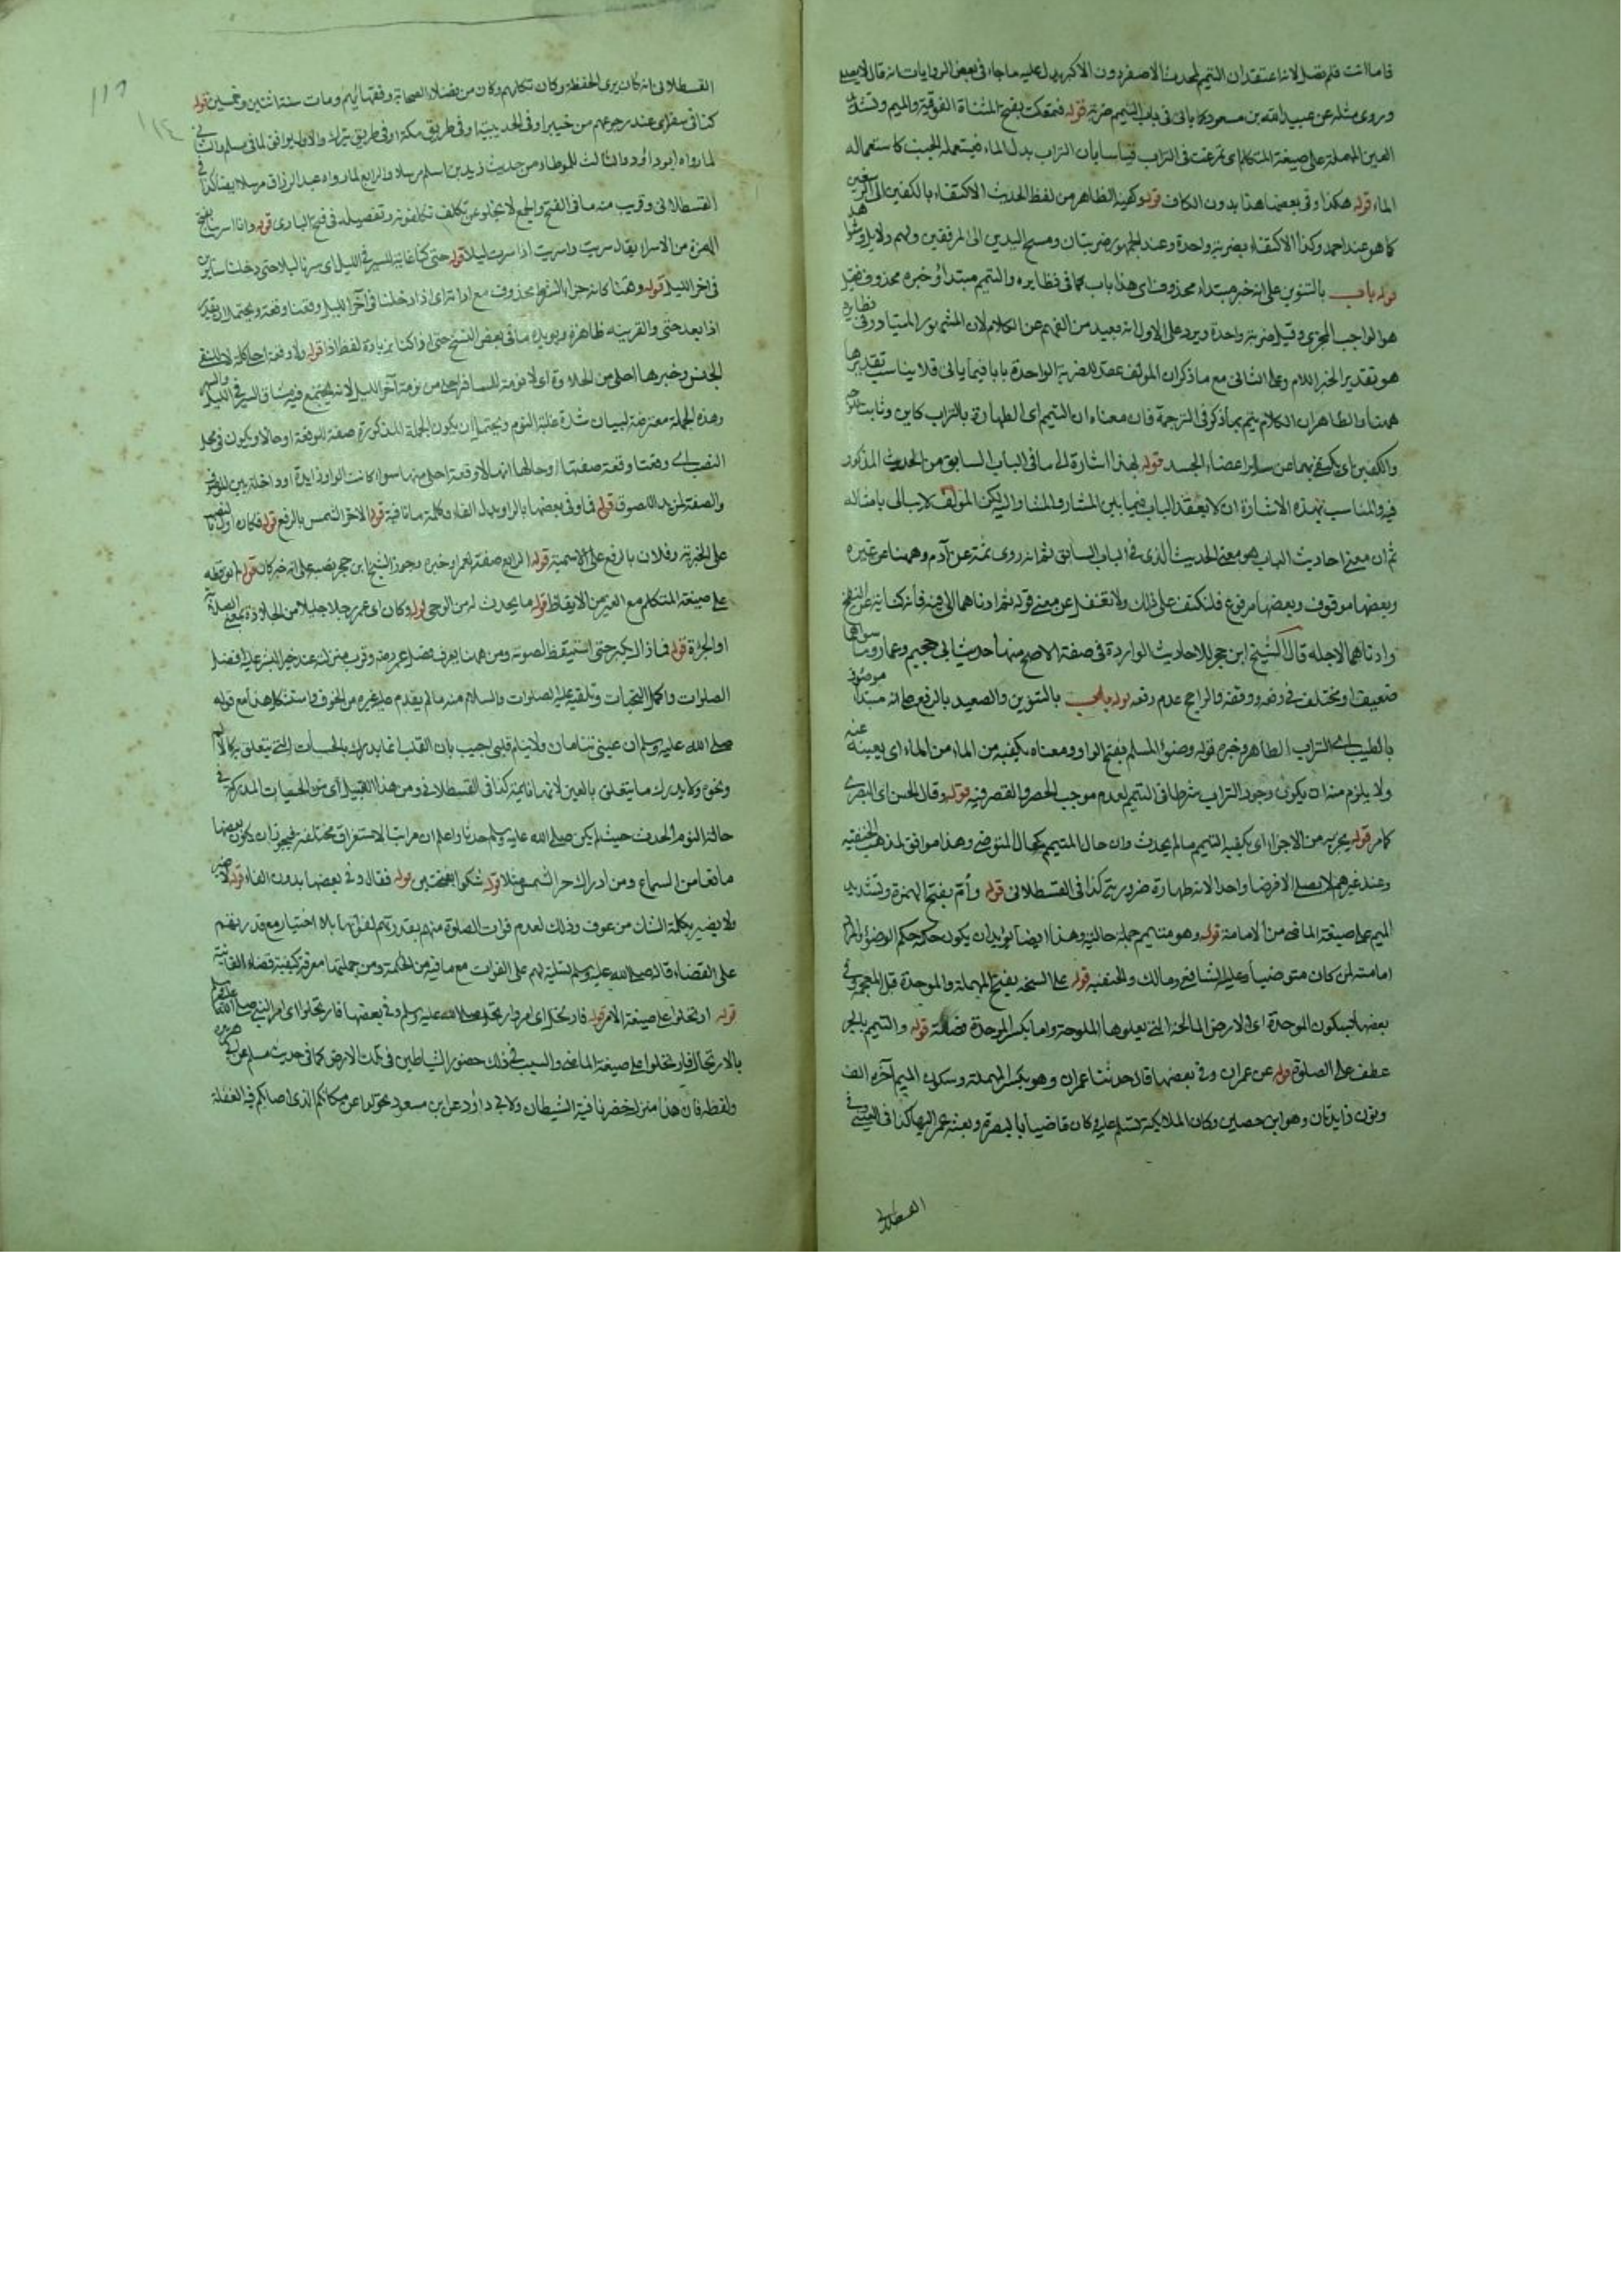 فاما انت فلم تصل لانه اعتقد ان التيمم لحدث الاصغر دون الاكبر يدل عليه ما جاء في بعض الروايات انه قال لا يصلي
وروي مثله عن عبد الله بن مسعود كما ياتي في باب التيمم ضربة قوله فتمعكت بفتح المثناة الفوقية والميم وتشديد
العين المهملة على صيغة المتكلم اي تمرغت في التراب قياسا بان التراب بدل الماء فيستعمله الجنب كاستعماله
الماء قوله هكذا وفي بعضها هذا بدون الكاف قوله وكفيه الظاهر من لفظ الحديث الاكتفاء بالكفين الى الرسغين
كما هو عند احمد وكذا الاكتفاء بضربة واحدة وعند الجمهور ضربتان ومسح اليدين الى المرفقين ولهم دلايل
قوله باب بالتنوين على انه خبر مبتداء محذوف اي هذا باب كما في نظايره والتيمم مبتدأ وخبره محذوف فقيل
هو الواجب المجزي وقيل ضربة واحدة ويرد على الاول انه بعيد من الفهم عن الكلام لان المشهور المتبادر في نظايره
هو تقدير الخبر اللام وعلى الثاني مع ما ذكر ان المؤلف عقد للضربة الواحدة بابا فيما ياتي فلا يناسب تقديرها
ههنا والظاهر ان الكلام يتم بما ذكر في الترجمة فان معناه ان التيمم اي الطهارة بالتراب كاين وثابت للوجه
والكفين اي يكتفي بهما عن ساير اعضاء الجسد قوله بهذا اشارة الى ما في الباب السابق من الحديث المذكور
فيه والمناسب بهذه الاشارة ان لا يعقد الباب فيما بين المشار والمشار اليه لكن المؤلف لا يبالي بامثاله
ثم ان معنى احاديث الباب هو معنى الحديث الذي في الباب السابق ثم انه روى ثمة عن آدم وههنا عن غيره
وبعضها موقوف وبعضها مرفوع فلنكتف على ذلك ولا تغفل عن معنى قوله ثم ادناهما الى فيه فانه كناية عن النفخ
وادناهما لاجله قال الشيخ ابن حجر للاحاديث الواردة في صفة الاصح منها حديث ابي جهيم وعمار وما سواهما
ضعيف او مختلف في رفعه ووقفه والراجح عدم رفعه قوله باب بالتنوين والصعيد بالرفع على انه مبتدأ موصوف
بالطيب اي التراب الطاهر وخبره قوله وضوء المسلم بفتح الواو ومعناه يكفيه من الماء من الماء اي يغنيه عنه
ولا يلزم منه ان يكون وجود التراب شرطا في التيمم لعدم موجب الحصر والقصر فيه قوله وقال الحسن اي البصري
كما مر قوله يجزيه من الاجزاء اي يكفيه التيمم ما لم يحدث وان حال المتيمم كحال المتوضي وهذا موافق لمذهب الحنفية
وعند غيرهم لا يصلي الا فرضا واحدا لانه طهارة ضرورية كذا في القسطلاني قوله وأمّ بفتح الهمزة وتشديد
الميم على صيغة الماضي من الامامة قوله وهو متيمم جملة حالية وهذا ايضا يؤيد ان يكون حكمه حكم الوضوء
امامته لمن كان متوضيا وعليه الشافعي ومالك والحنفية قوله على السبخة بفتح المهملة والموحدة قبل المعجمة وفي
بعضها بسكون الموحدة اي الارض المالحة التي يعلوها الملوحة واما بكسر الموحدة فصفة قوله والتيمم بالجر
عطف على الصلوة قوله عن عمران وفي بعضها قال حدثنا عمران وهو بكسر المهملة وسكون الميم آخره الف
ونون زايدتان وهو ابن حصين وكان الملايكة تسلم عليه وكان قاضيا بالبصرة وبعثه عمر اليها كذا في العيني وفي
القسطلاني
القسطلاني انه كان يرى الحفظة وكان تكلمهم وكان من فضلاء الصحابة وفقهائهم ومات سنة اثنتين وخمسين قوله
كنا في سفر اي عند رجوعهم من خيبر او في الحديبية او في طريق مكة او في طريق تبوك والاول يوافق لما في مسلم والثاني
لما رواه ابو داود والثالث للموطا من حديث زيد بن اسلم مرسلا والرابع لما رواه عبد الرزاق مرسلا ايضا كذا في
القسطلاني وقريب منه ما في الفتح والجمع لا يخلو عن تكلف وتفصيله في فتح الباري قوله وانا اسرينا بفتح
الهمزة من الاسراء يقال سريت واسريت اذا سرت ليلا قوله حتى كنا غاية للسير في الليل اي سرنا ليلا حتى دخلنا سايرين
في آخر الليل قوله وقعنا كانه جزاء الشرط محذوف مع اداته اي اذا دخلنا في آخر الليل وقعنا وقعة ويحتمل ان يقدر
اذا بعد حتى والقرينة ظاهرة ويؤيده ما في بعض النسخ حتى اذا كنا بزيادة لفظ اذا قوله ولا وقعة احلى كلمة لا للنفي
الجنس وخبرها احلى من الحلاوة اي لا نومة للمسافر احلى من نومة آخر الليل لانه يجتمع فيه مشاق السير في الليل
وهذه الجملة معترضة لبيان شدة غلبة النوم ويحتمل ان يكون الجملة المذكورة صفة للوقعة او حالا ويكون في محل
النصب اي وقعنا وقعة صفتها او حالها انها لا وقعة احلى منها سوا كانت الواو زايدة او داخلة بين الموصوف
والصفة لمزيد اللصوق قوله فما وفي بعضها بالواو بدل الفاء وكلمة ما نافية قوله الا حر الشمس بالرفع قوله فكان اول بالنصب
على الخبرية وفلان بالرفع على الاسمية قوله الرابع صفة لعمر او خبره وجوز الشيخ ابن حجر نصبه على انه خبر كان قوله لم نوقظه
على صيغة المتكلم مع الغير من الايقاظ قوله ما يحدث له من الوحي قوله وكان اي عمر رجلا جليدا من الجلادة بمعنى الصلابة
او الجراة قوله فما زال يكبر حتى استيقظ لصوته ومن ههنا يعرف فضل عمر رضه وقرب منزلته عند خير البشر عليه افضل
الصلوات واكمل التحيات وتلقيه عليه الصلوات والسلام منه ما لم يقدم عليه غيره من الخوف واستشكل هذا مع قوله
صلى الله عليه وسلم ان عيني تنامان ولا ينام قلبي اجيب بان القلب انما يدرك بالحسيات التي يتعلق به كالالم
ونحوه ولا يدرك ما يتعلق بالعين لانها نائمة كذا في القسطلاني ومن هذا القبيل اي من الحسيات المدركة في
حالة النوم الحدث حيث لم يكن صلى الله عليه وسلم حدثا واعلم ان مراتب الاستغراق مختلفة فيجوز ان يكون بعضها
مانعا من السماع ومن ادراك حر الشمس مثلا قوله شكوا بفتحتين قوله فقال وفي بعضها بدون الفاء قوله لا ضير
ولا يضير بكلمة الشك من عوف وذلك لعدم فوات الصلوة منهم بقدرتهم لفواتها بلا اختيار مع قدرتهم
على القضاء قاله صلى الله عليه وسلم لتسلية لهم على الفوات مع ما فيه من الحكمة ومن جملتها معرفة كيفية قضاء الفايتة
قوله ارتحلوا على صيغة الامر قوله فارتحل اي امر وارتحل صلى الله عليه وسلم وفي بعضها فارتحلوا اي امر النبي صلى الله عليه وسلم
بالارتحال فارتحلوا على صيغة الماضي والسبب في ذلك حضور الشياطين في تلك الارض كما في حديث مسلم عن ابي هريرة
ولفظه فان هذا منزل حضرنا فيه الشيطان ولابي داود عن ابن مسعود تحولوا عن مكانكم الذي اصابكم فيه الغفلة